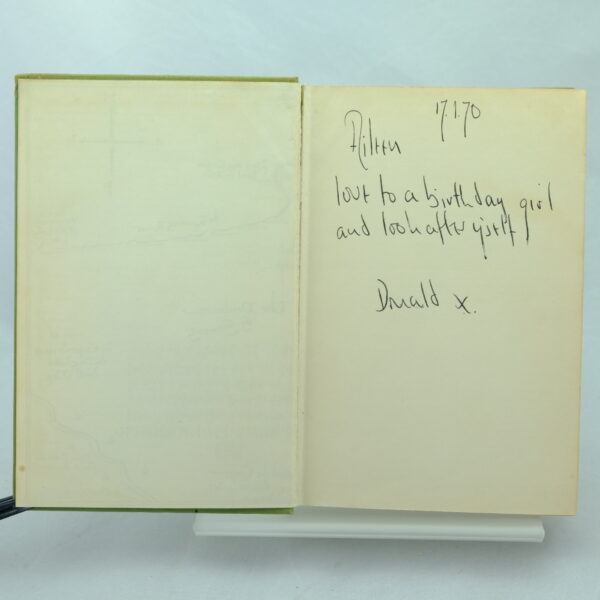 17.1.70
Aileen
love to a birthday girl
and look after y'self
Donald x.